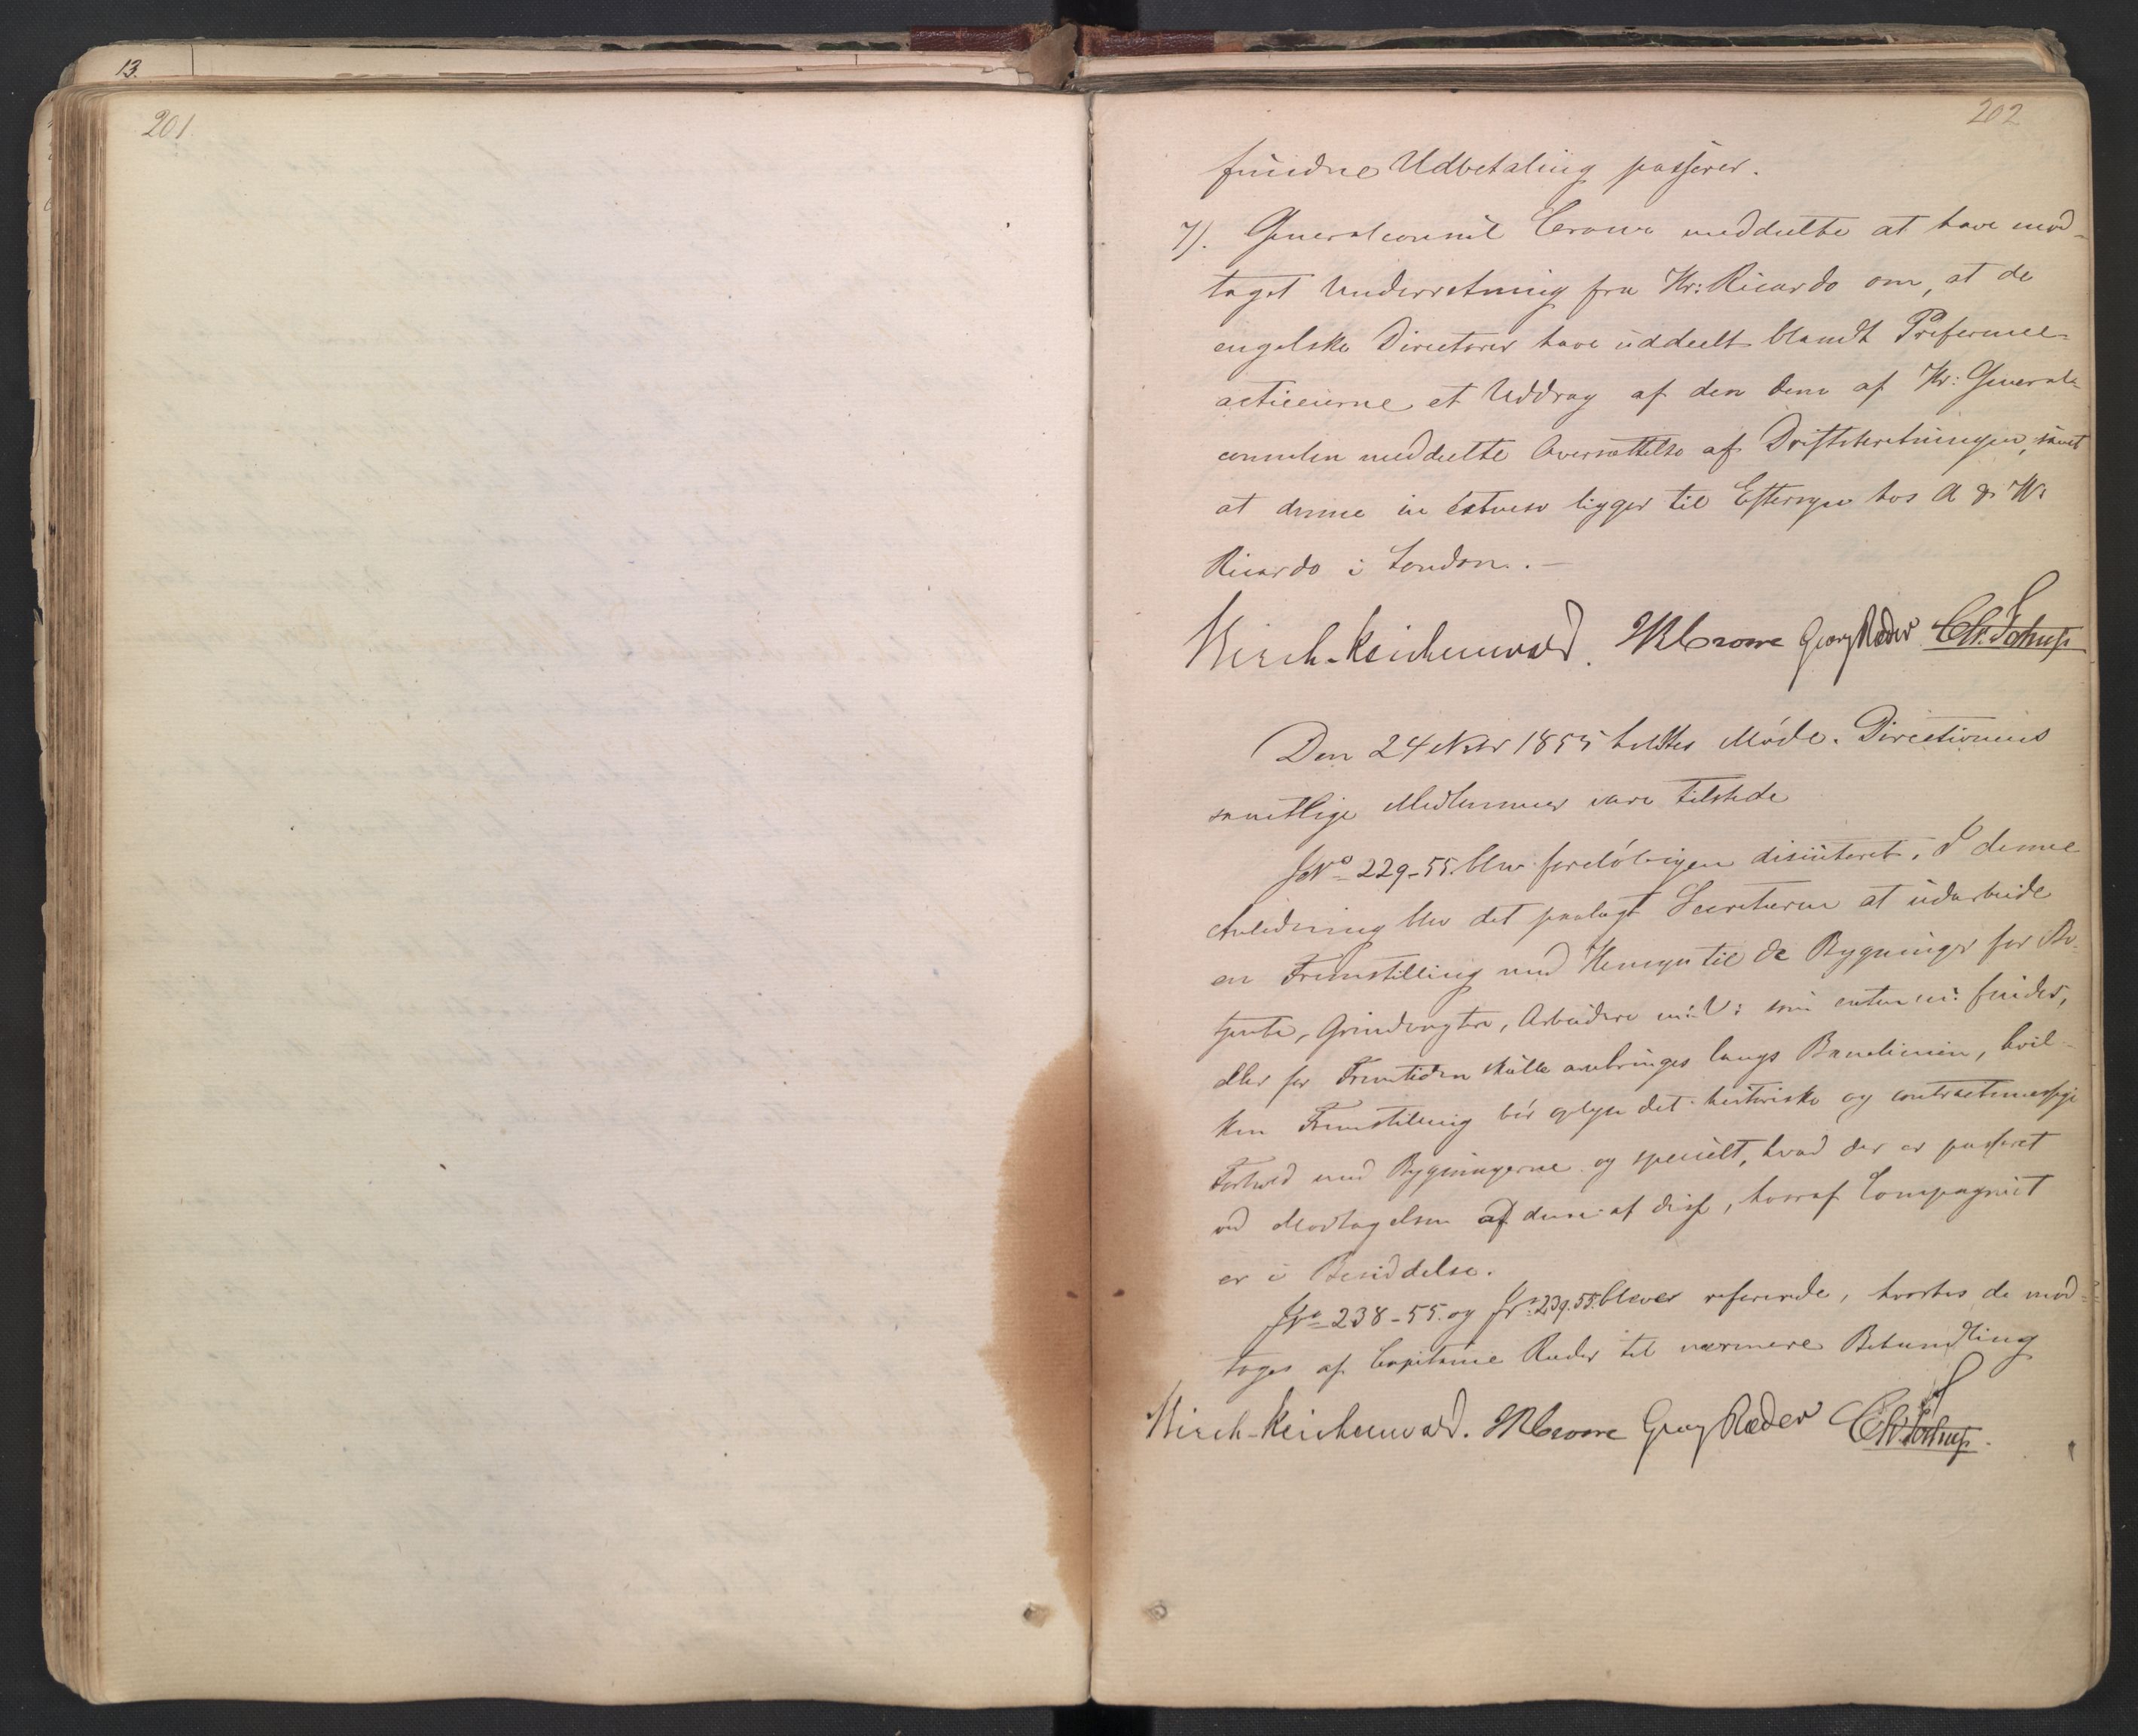 13.
201.
202
fundne Udbetaling passerer.
7). Generalconsul Crowe meddeelte at have mod-
taget Underretning fra Hr: Ricardo om, at de
engelske Directører have uddeelt blandt Præferencee-
actieeierne et Uddrag af den dem af Hr: General-
consulen meddeelte Oversættelse af Driftsberetningen, samt
at denne in extenso ligger til Eftersyn hos A & W:
Ricardo i London. –
Birch-Reichenwald. JRCrowe Georg Ræder Chr. Schup
Den 24 Novbr 1855 holdtes Møde. Directionens
samtlige Medlemmer vare tilstede
JNo 229-55. blev foreløbigen discuteret. I denne
Anledning blev det paalagt Secretæren at udarbeide
en Fremstilling med Hensyn til de Bygninger for Be-
tjente, Grindvogtere, Arbeidere m: V: som enten nu findes,
eller for Fremtiden skulle anbringes langs Banelinien, hvil-
ken Fremstilling bør oplyse det historiske og contractmæssige
Forhold med Bygningerne og specielt, hvad der er passeret
ved Modtagelsen af dem af disse, hvoraf Compagniet
er i Besiddelse.
JNo 238-55. og JNo 239.55. bleve refererede, hvorhos de mod-
toges af Capitaine Ræder til nærmere Behandling
Birch-Reichenwald. JRCrowe Georg Ræder Chr. Schup.